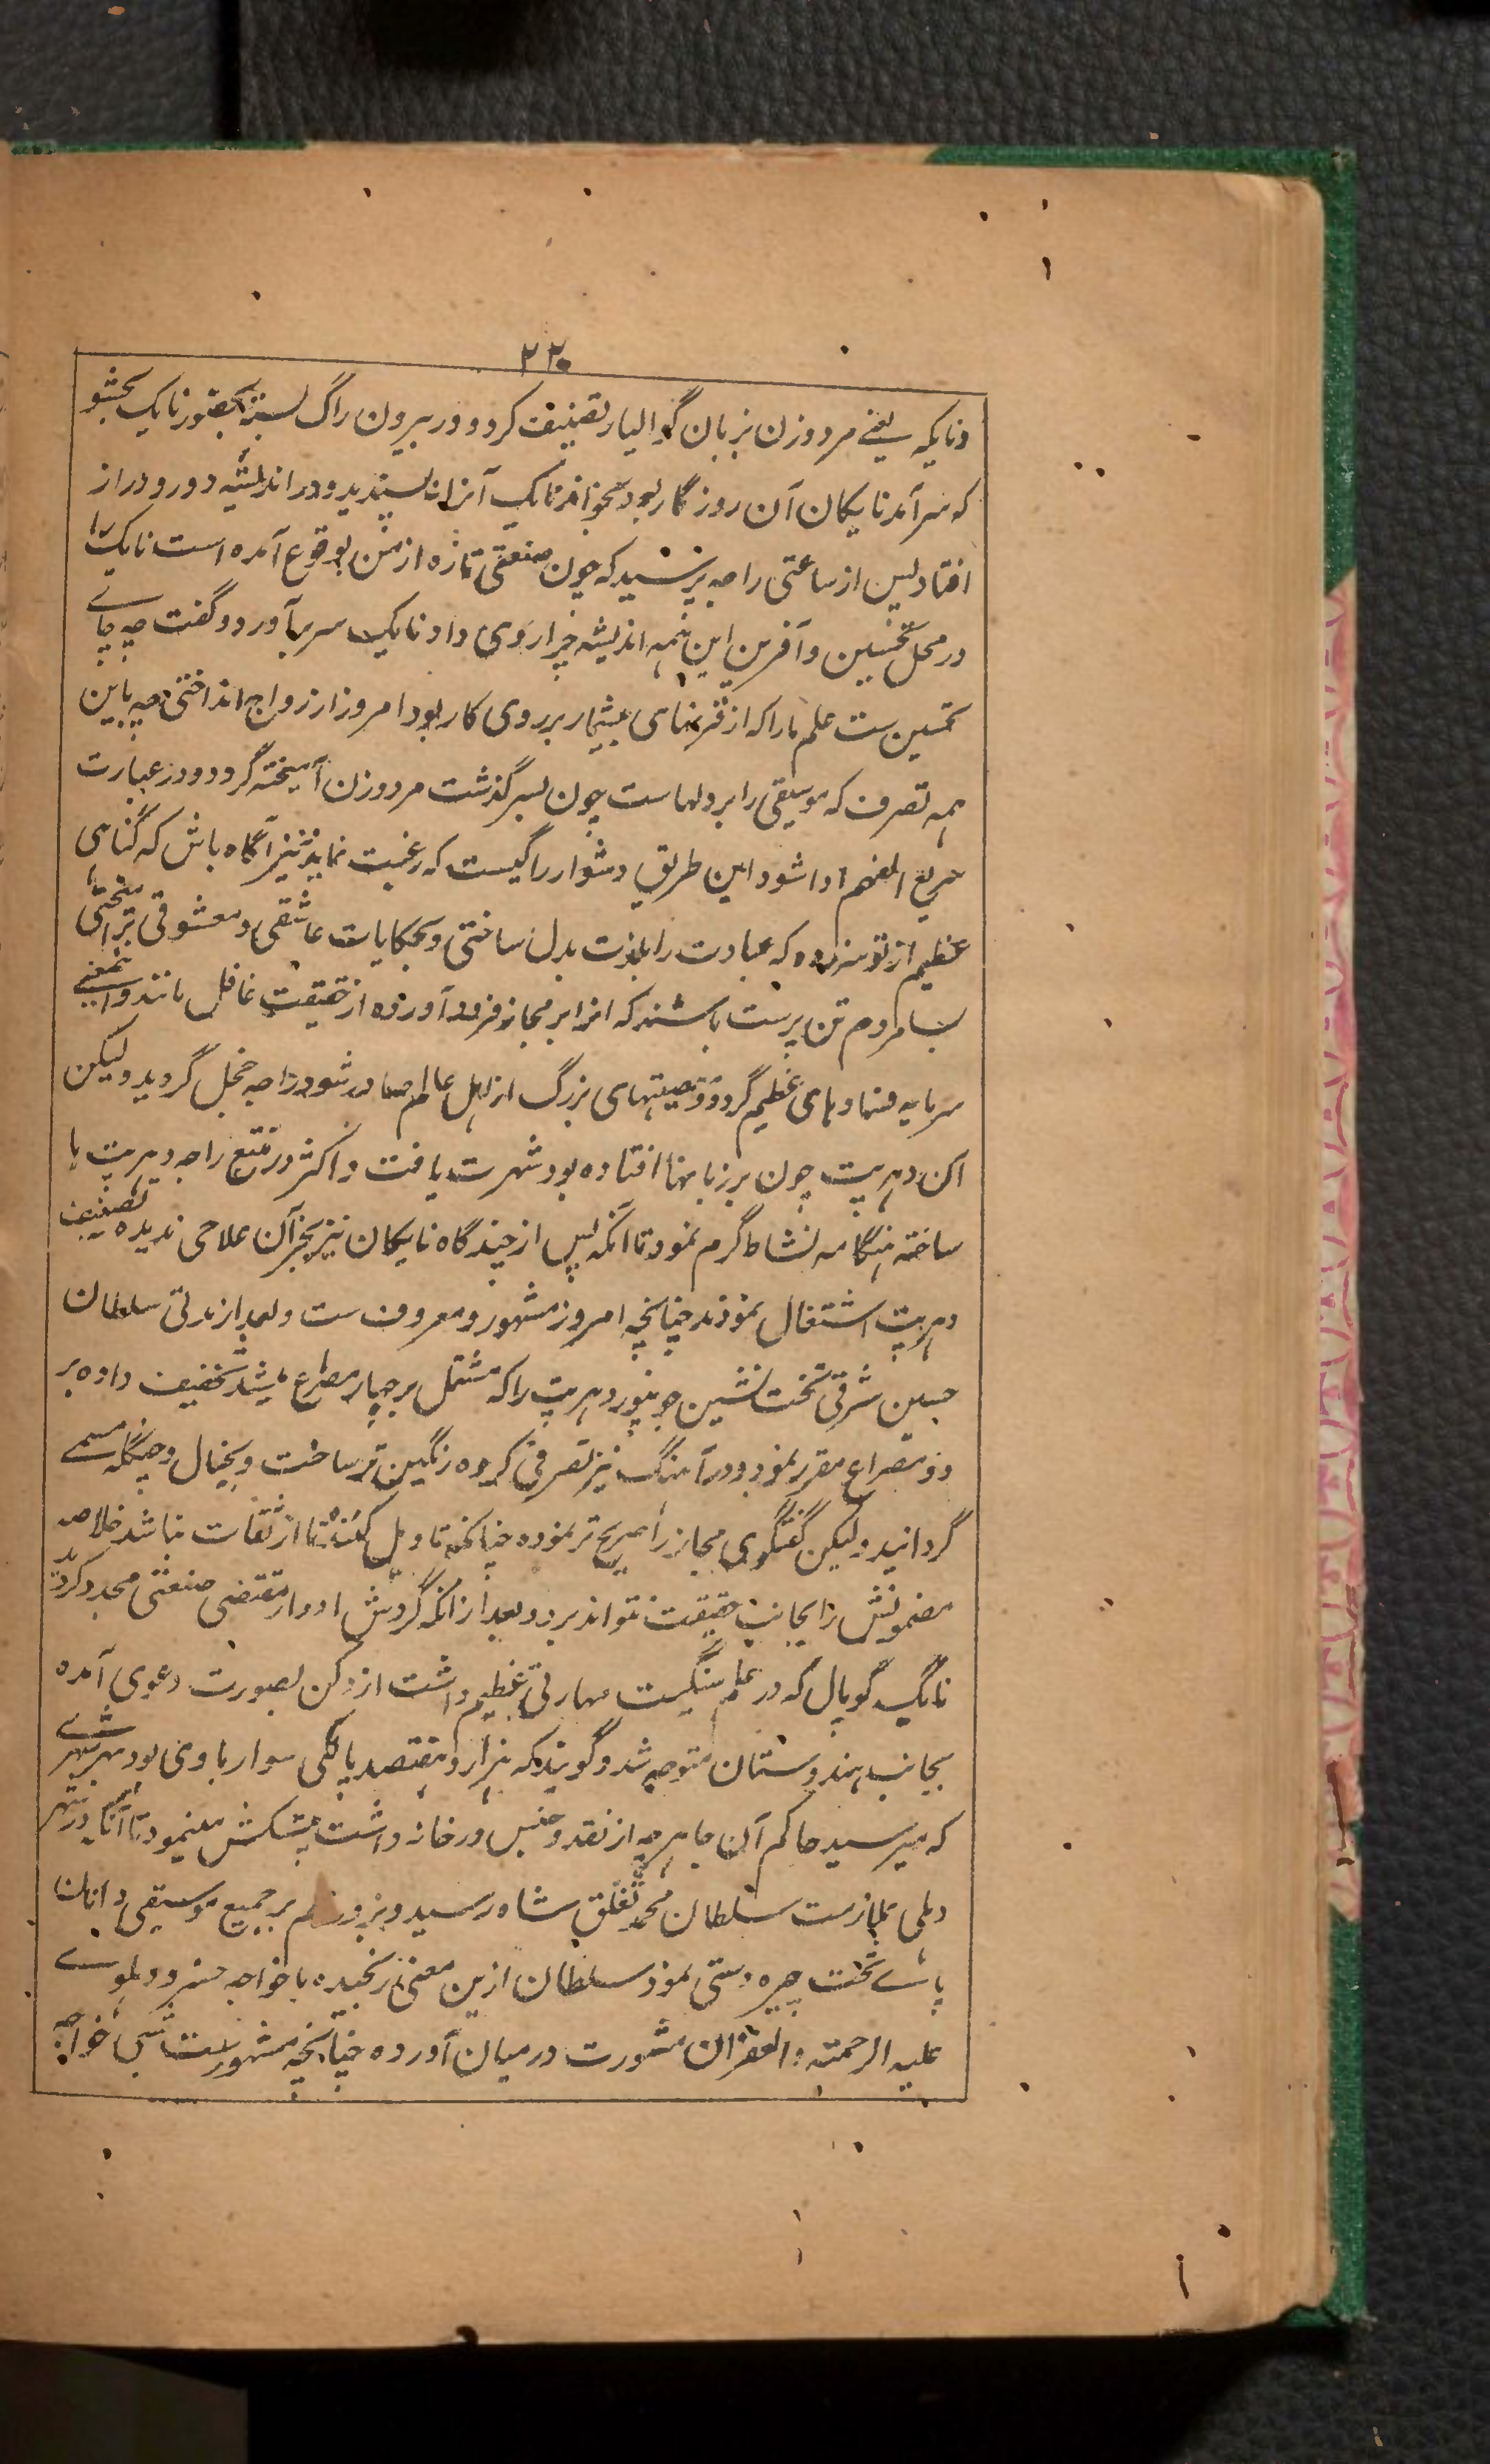 ۲۲۰
ونایکه یعنے مرد وزن بزبان گوالیار تصنیف کرد و در بیرون راگ بسته بحضور نایک بخشو
که سرآمد نایکان آن روزگار بود بخواند نایک آنرا نپسندید و در اندیشه دور و دراز
افتاد پس از ساعتی راجه پرسید که چون صنعتی تازه از من بوقوع آمده است نایک را
در محل تحسین و آفرین این همه اندیشه چرا روی داد نایک سر برآورد و گفت چه جاے
تحسین ست علم مارا که از قرنهای بیشمار بر روی کار بود امروز از رواج انداختی چه باین
همه تصرف که موسیقی را بر دلهاست چون بسر گذشت مرد وزن آمیخته گردد و در عبارت
سریع الفهم ادا شود این طریق دشوار را کیست که رغبت نماید نیز آگاه باش که گناهی
عظیم از تو سر زده که عبادت را بلذت بدل ساختی و بحکایات عاشقی و معشوقی برآمیختی
بسا مردم تن پرست باشند که انرا بر مجاز فرود آورده از حقیقت غافل مانند و اینمعنے
سرمایه فسادهای عظیم گردد و معصیتهای بزرگ از اهل عالم صادر شود راجه خجل گردید ولیکن
آن دهرپت چون بر زبانها افتاده بود شهرت یافت و اکثر در تتبع راجه دهرپت ها
ساخته هنگامه نشاط گرم نمود تا آنکه پس از چندگاه نایکان نیز بجز آن علاجی ندیده تصنیف
دهرپت اشتغال نمودند چنانچه امروز مشهور و معروف ست و بعد از مدتی سلطان
حسین شرقی تخت نشین جونپور دهرپت را که مشتمل بر چهار مصراع میشد تخفیف داده بر
دو مصراع مقرر نمود و در آهنگ نیز تصرفی کرده رنگین تر ساخت و بخیال و چٹکله مسمے
گردانید ولیکن گفتگوی مجاز را صریح تر نموده چنانکه تاویل کننده تا از ثقات نباشد خلاصه
مضمونش را بجانب حقیقت نتواند برد و بعد از آنکه گردش ادوار مقتضی صنعتی مجدد گردید
نایک گوپال که در علم سنگیت مهارتی عظیم داشت از دکن بصورت دعوی آمده
بجانب هندوستان متوجه شد و گویند که هزار و هفتصد پالکی سوار با وی بود بهر شهرے
که میرسید حاکم آن جا هرچه از نقد و جنس در خانه داشت پیشکش مینمود تا آنکه در شهر
دهلی بملازمت سلطان محمد تغلق شاه رسید و بزور علم بر جمیع موسیقی دانان
پاے تخت چیره دستی نمود سلطان ازین معنی رنجیده با خواجه خسرو دهلوے
علیه الرحمته و الغفران مشورت در میان آورده چنانچه مشهورست خواجه